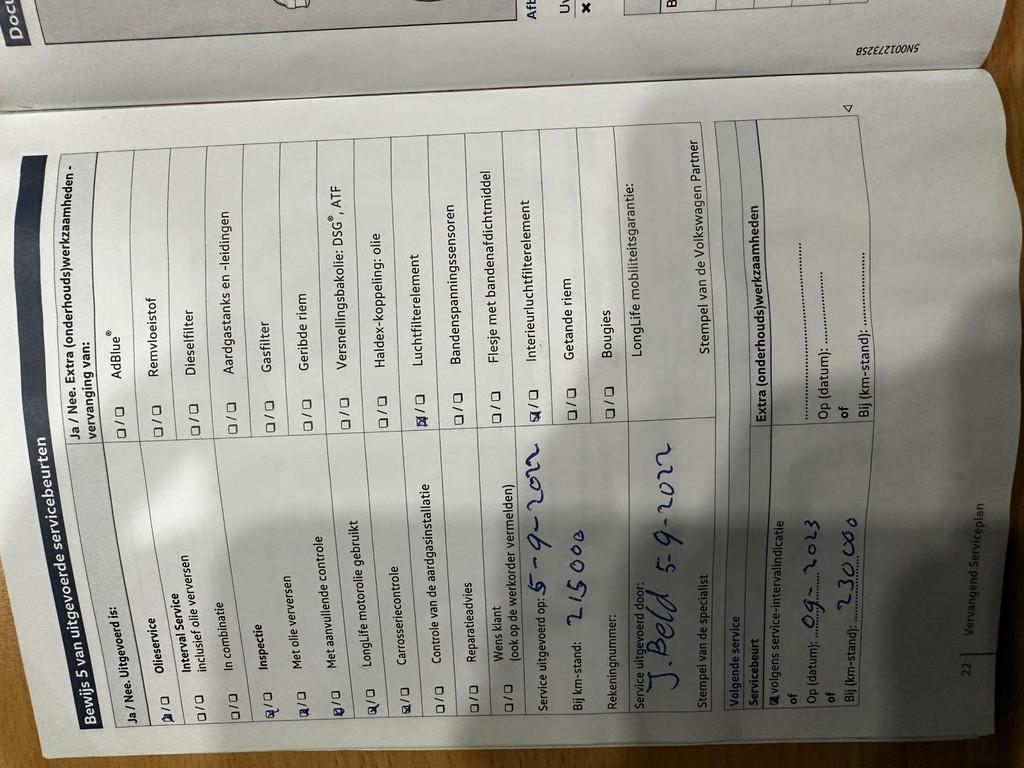 Bewijs 5 van uitgevoerde servicebeurten
Ja / Nee. Uitgevoerd is:
☑/☐ Olieservice
☐/☐ Interval Service
inclusief olie verversen
☐/☐ In combinatie
☑/☐ Inspectie
☑/☐ Met olie verversen
☑/☐ Met aanvullende controle
☑/☐ LongLife motorolie gebruikt
☑/☐ Carrosseriecontrole
☐/☐ Controle van de aardgasinstallatie
☐/☐ Reparatieadvies
☐/☐ Wens klant
(ook op de werkorder vermelden)
Service uitgevoerd op: 5-9-2022
Bij km-stand: 215000
Rekeningnummer:
Service uitgevoerd door:
J. Beld 5-9-2022
Stempel van de specialist
Ja / Nee. Extra (onderhouds)werkzaamheden -
vervanging van:
☐/☐ AdBlue®
☐/☐ Remvloeistof
☐/☐ Dieselfilter
☐/☐ Aardgastanks en -leidingen
☐/☐ Gasfilter
☐/☐ Geribde riem
☐/☐ Versnellingsbakolie: DSG®, ATF
☐/☐ Haldex-koppeling: olie
☑/☐ Luchtfilterelement
☐/☐ Bandenspanningssensoren
☐/☐ Flesje met bandenafdichtmiddel
☑/☐ Interieurluchtfilterelement
☐/☐ Getande riem
☐/☐ Bougies
LongLife mobiliteitsgarantie:
Stempel van de Volkswagen Partner
Volgende service
Servicebeurt
☑ volgens service-intervalindicatie
of
Op (datum): 09-2023
of
Bij (km-stand): 230000
Extra (onderhouds)werkzaamheden
....................
Op (datum): ............
of
Bij (km-stand): ............
22 Vervangend Serviceplan
5N0012732SB
Docu